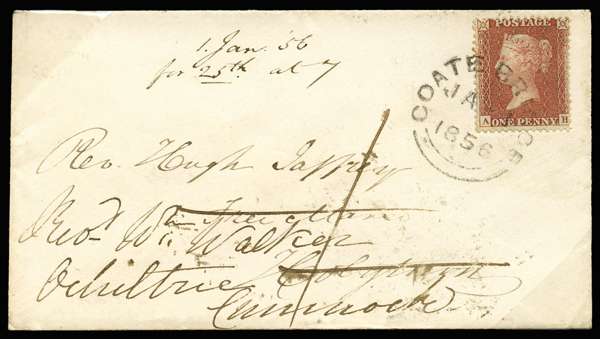 1. Jan. 56
for 25th at 7
POSTAGE
ONE PENNY
A H
COATEBRIDGE
JA 1
1856
Rev. Hugh Jaffrey
Revd. Wm. Walker
Ochiltree
Cumnock